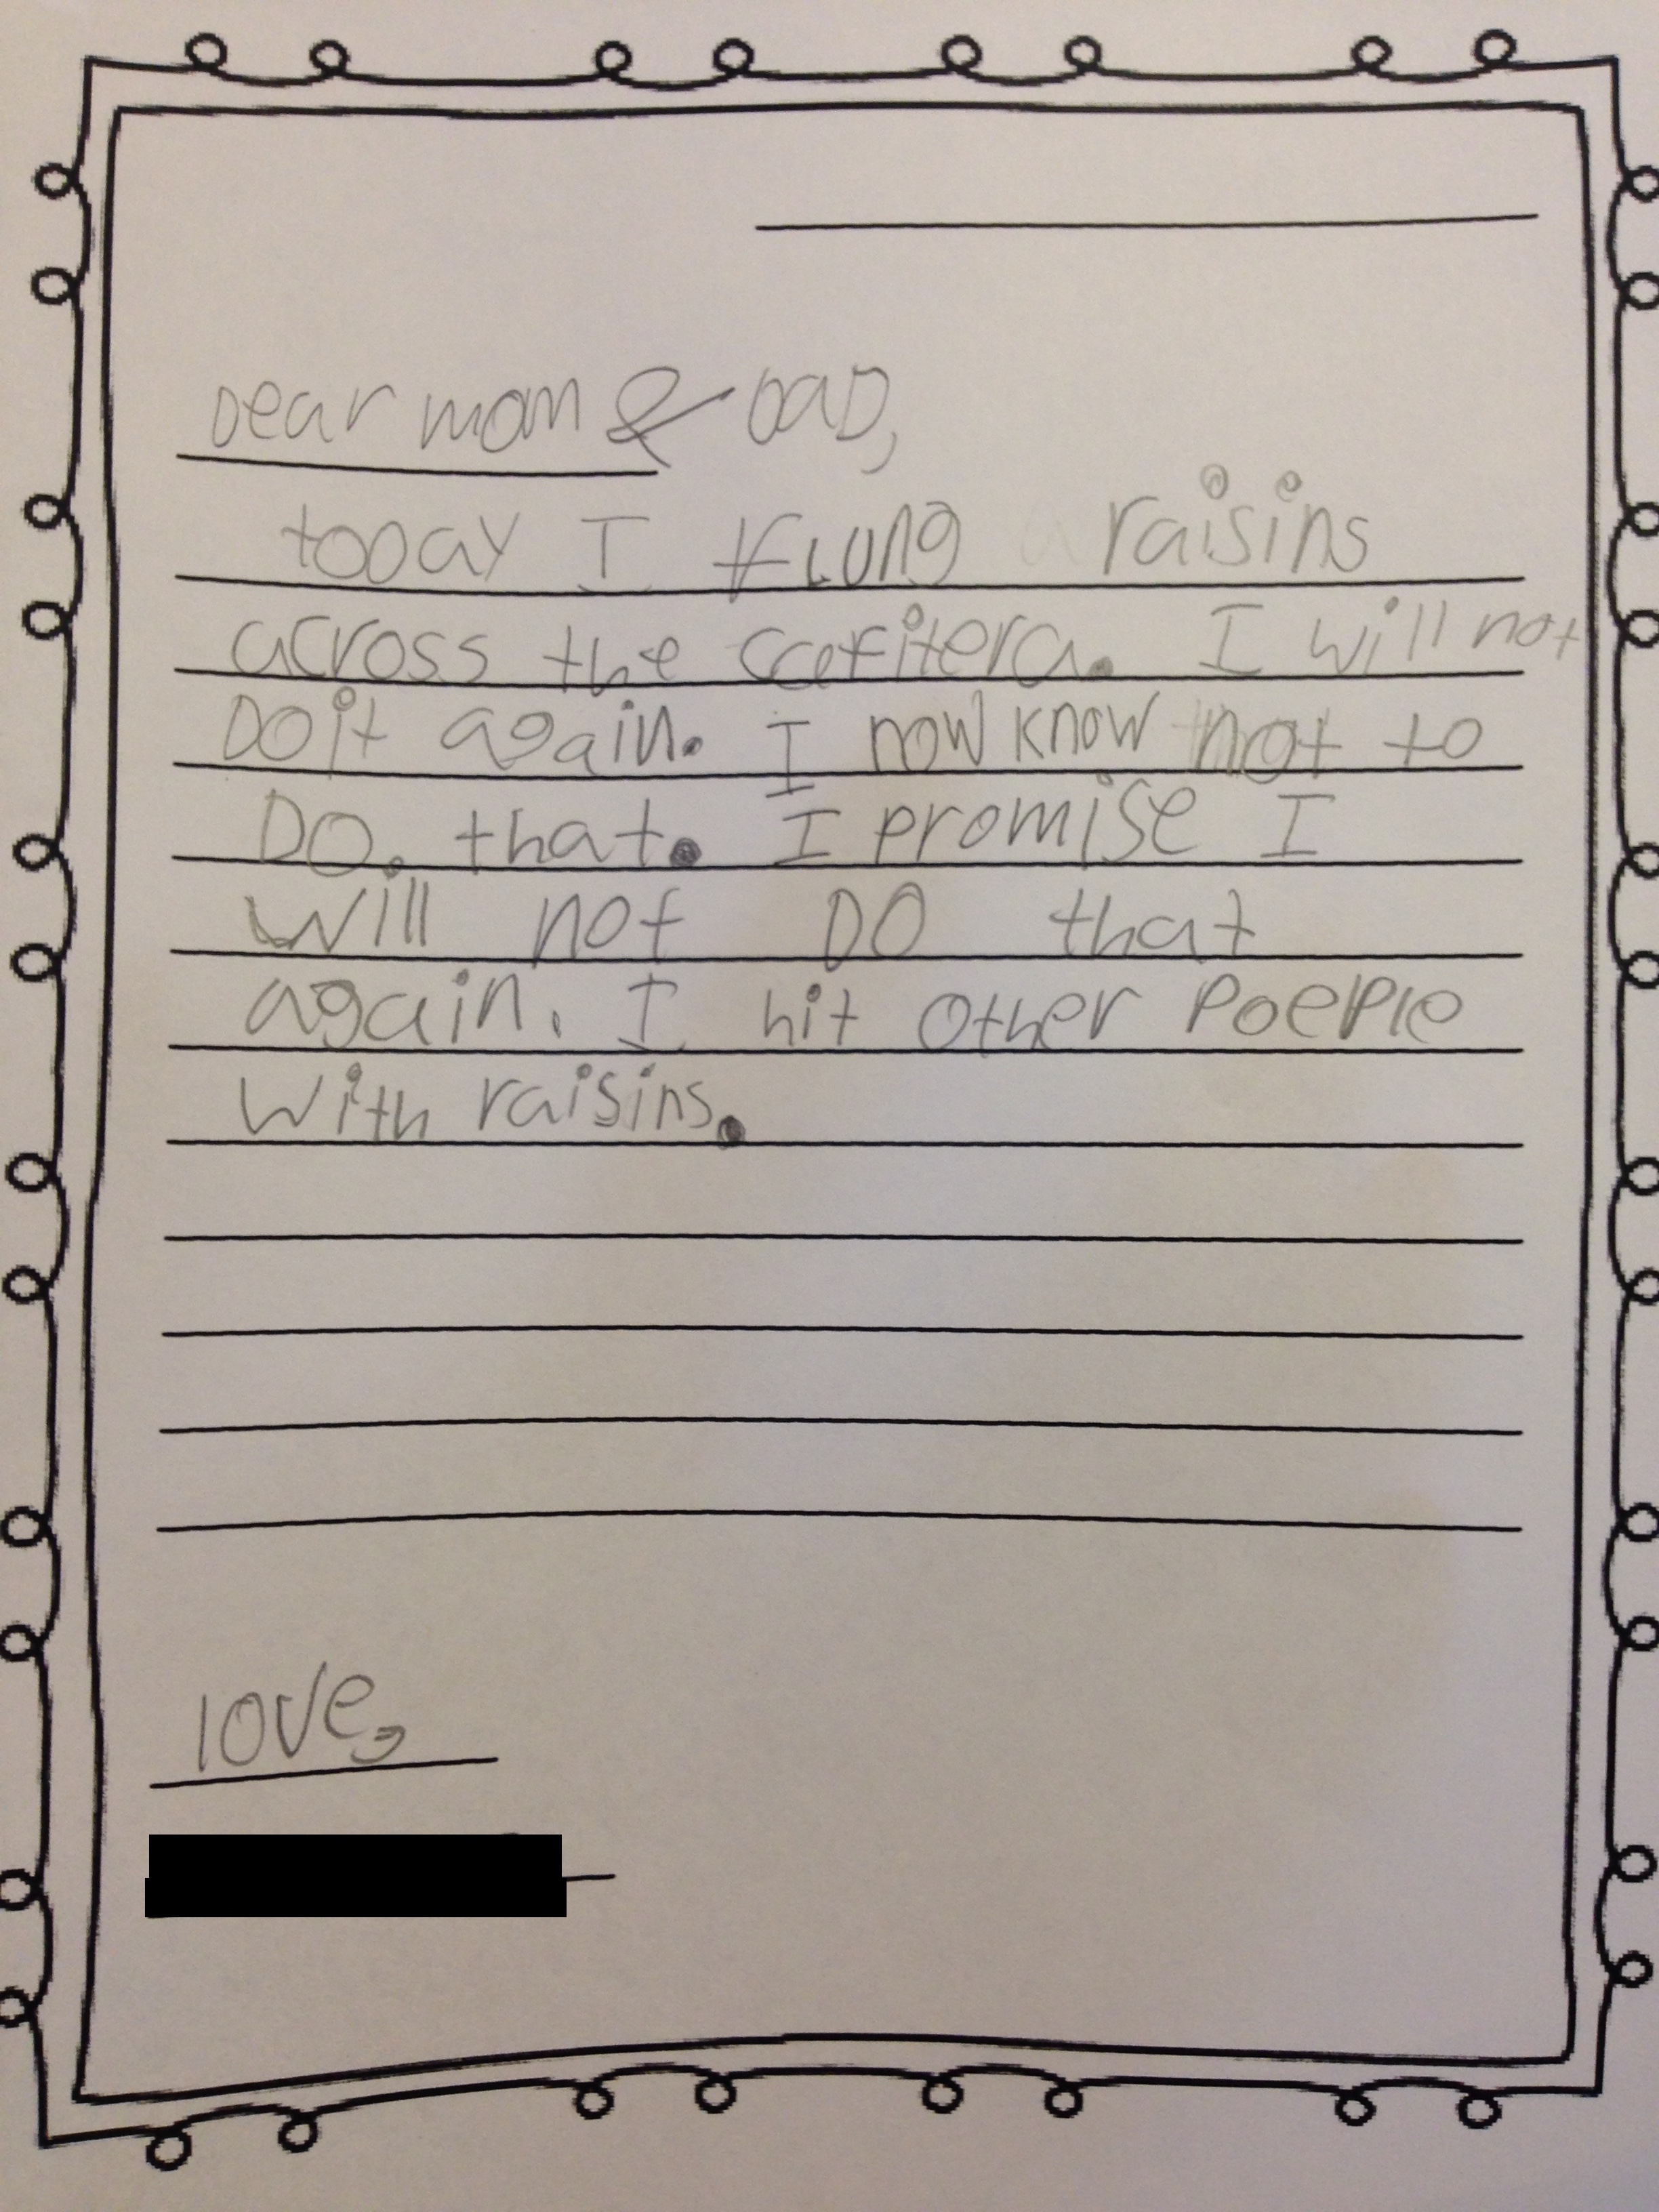 Dear mom & DaD,
toDay I Flung raisins
across the cafitera. I will not
Do it again. I now know not to
Do. that. I promise I
will not DO that
again. I hit other Poeple
With raisins.
love,